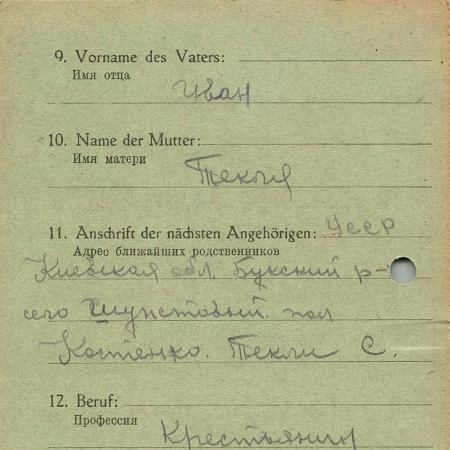 9. Vorname des Vaters:
Имя отца
Иван
10. Name der Mutter:
Имя матери
Текля
11. Anschrift der nächsten Angehörigen: УССР
Адрес ближайших родственников
Киевская обл. Букский р-
село пол
Костенко. Текли С.
12. Beruf:
Профессия
Крестьянин